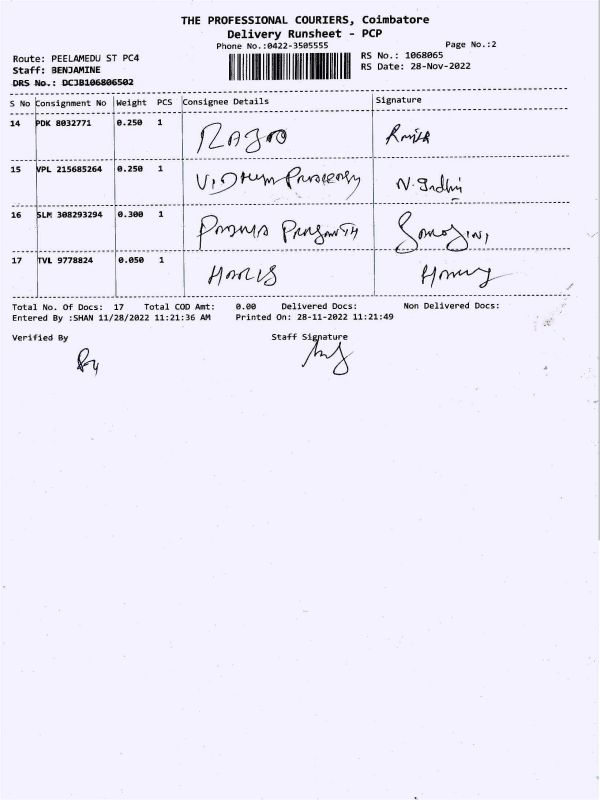 THE PROFESSIONAL COURIERS, Coimbatore
Delivery Runsheet - PCP
Phone No.:0422-3505555 Page No.:2
Route: PEELAMEDU ST PC4 RS No.: 1068065
Staff: BENJAMINE RS Date: 28-Nov-2022
DRS No.: DCJB106806502
S No Consignment No Weight PCS Consignee Details Signature
14 PDK 8032771 0.250 1
15 VPL 215685264 0.250 1
16 SLM 308293294 0.300 1
17 TVL 9778824 0.050 1 HARIS
Total No. Of Docs: 17 Total COD Amt: 0.00 Delivered Docs: Non Delivered Docs:
Entered By :SHAN 11/28/2022 11:21:36 AM Printed On: 28-11-2022 11:21:49
Verified By Staff Signature